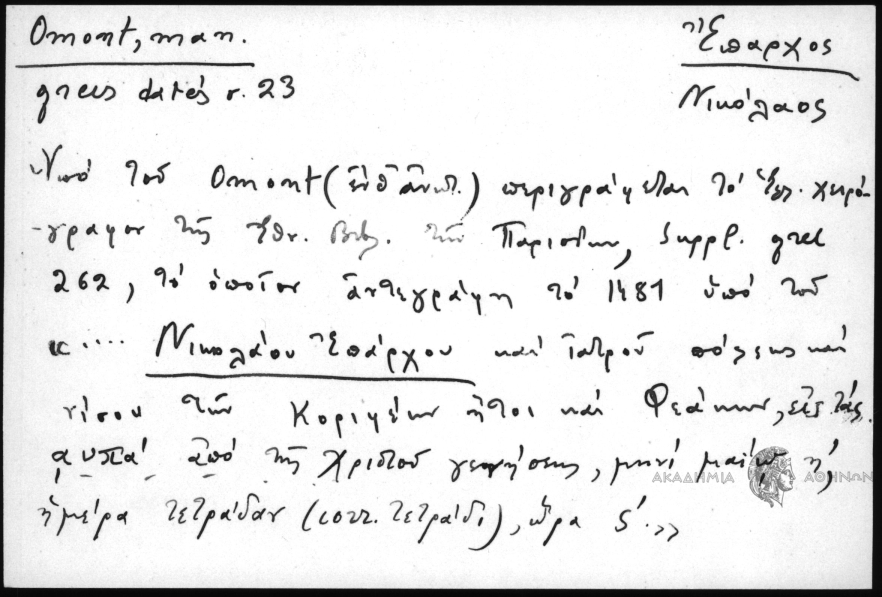 Omont, man. Ἔπαρχος
grecs datés σ. 23 Νικόλαος
Ὑπό τοῦ Omont (ἔνθ' ἀνωτ.) περιγράφεται τό ἑλ. χειρό-
-γραφον τῆς Ἐθν. Βιβ. τῶν Παρισίων, Suppl. grec
262, τό ὁποῖον ἀντεγράφη τό 1481 ὑπό τοῦ
«.... Νικολάου Ἐπάρχου καί ἰατροῦ πόλεως καί
νίσου τῶν Κοριφέων ἤτοι καί Φεάκων, εἰς τάς
αυπα' ἀπό τῆς Χριστοῦ γεννήσεως, μηνί μαίῳ η',
ἡμέρα τετράδαν (corr. τετράδι), ὥρα ς'.»
ΑΚΑΔΗΜΙΑ ΑΘΗΝΩΝ